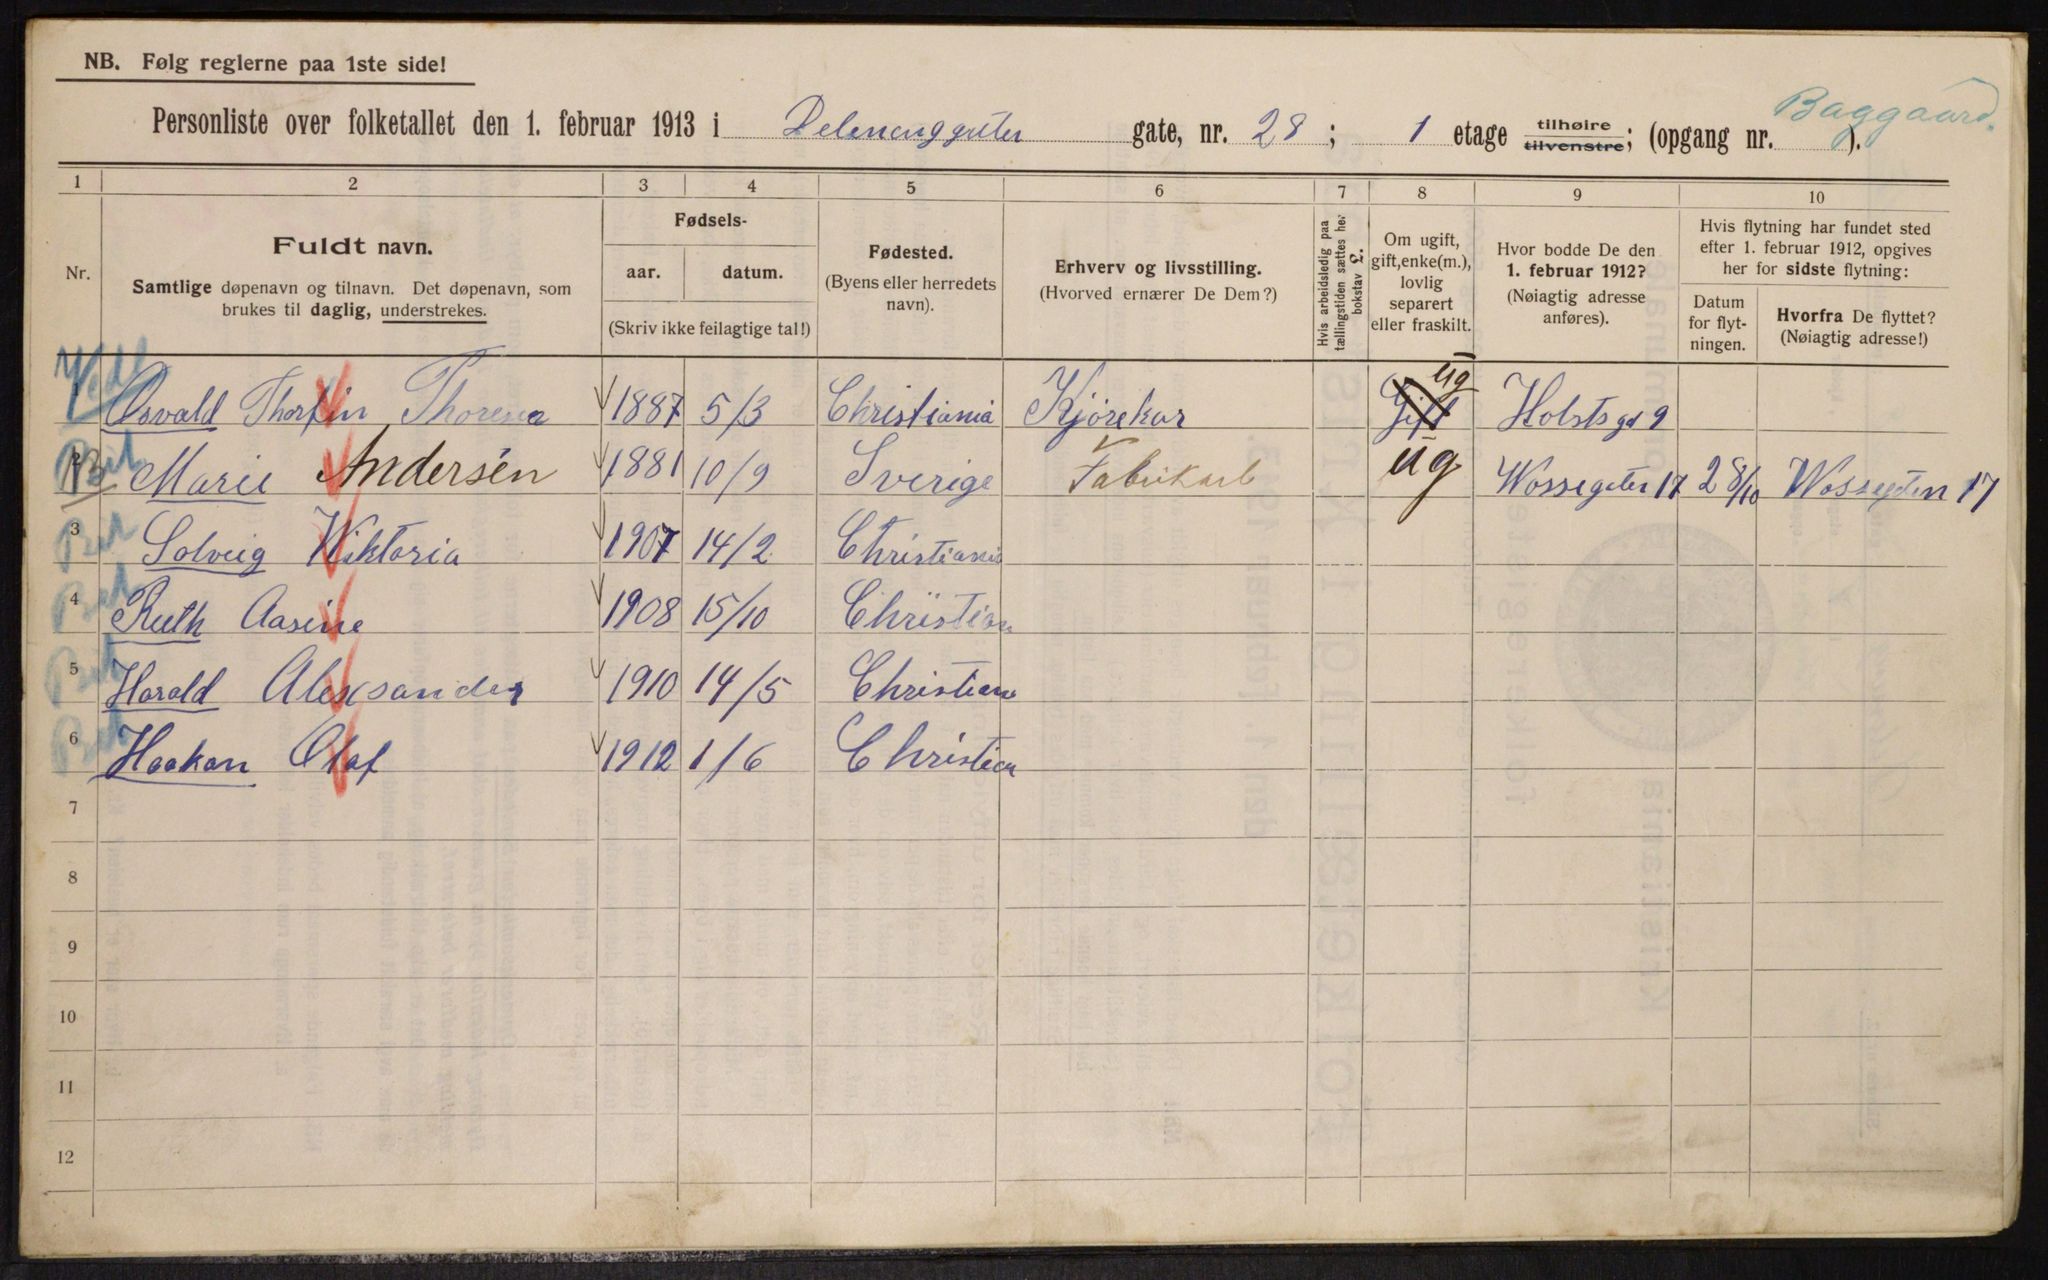 NB. Følg reglerne paa 1ste side!
Personliste over folketallet den 1. februar 1913 i Delenenggaten gate, nr. 28; 1 etage tilhøire tilvenstre; (opgang nr. Baggaard. ).
1 2 3 4 5 6 7 8 9 10
Nr.
Fuldt navn.
Samtlige døpenavn og tilnavn. Det døpenavn, som
brukes til daglig, understrekes.
Fødsels-
aar. datum.
(Skriv ikke feilagtige tal!)
Fødested.
(Byens eller herredets
navn).
Erhverv og livsstilling.
(Hvorved ernærer De Dem?)
Hvis arbeidsledig paa
tællingstiden sættes her
bokstav L.
Om ugift,
gift, enke(m.),
lovlig
separert
eller fraskilt.
Hvor bodde De den
1. februar 1912?
(Nøiagtig adresse
anføres).
Hvis flytning har fundet sted
efter 1. februar 1912, opgives
her for sidste flytning:
Datum
for flyt-
ningen.
Hvorfra De flyttet?
(Nøiagtig adresse!)
1 Osvald Thorfin 1887 5/3 Christiania Kjørekar Gift ug Holstsgd 9
Marie Andersén 1881 10/9 Sverige Fabrikarb ug Wossegaten 17 28/10 Wossegaten 17
3 Solveig Wiktoria 1907 14/2 Christiania
4 Ruth Aasine 1908 15/10 Christian
5 Harald Aleksander 1910 14/5 Christian
6 Haakon Olaf 1912 1/6 Christian
7
8
9
10
11
12